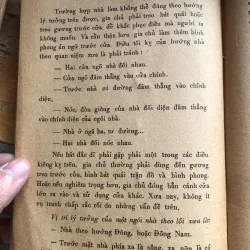 Trường hợp nhà làm không thể đúng theo hướng
lý tưởng trên được, gia chủ phải treo bát quái hoặc
theo gương trước cửa để khắc phục điều mà người ta
không ưa thích. Và cần thận hơn gia chủ làm thêm bình
phong án ngữ trước cửa. Điều tối kỵ của hướng nhà
theo quan niệm xưa là phải tránh :
— Hai cửa ngõ nhà đối nhau.
— Cửa ngõ đâm thẳng vào cửa chính.
— Trước nhà có đường đâm thẳng vào cửa chính
diện.
— Nóc, đòn giông của nhà đối diện đâm thẳng
vào cửa chính của ngôi nhà.
— Nhà ở ngã ba, tư đường...
— Hai nhà đối nóc nhau.
Nếu bất đắc dĩ phải gặp phải một trong các điều
kiêng kỵ trên, gia chủ thường phải dùng đến gương
treo trước cửa, hình bát quái trấn đồ và bình phong.
Hoặc nếu nghiêm trọng hơn, gia chủ đóng hẳn cánh cửa
lớn ra vào và sử dụng cửa khác. Xưa nay, không ít
vụ tranh chấp rắc rối do những vấn đề trên.
Vị trí lý tưởng của một ngôi nhà theo lối xưa là:
— Nhà theo hướng Đông, hoặc Đông Nam.
— Trước mặt nhà phía xa là sông, xa nữa là có